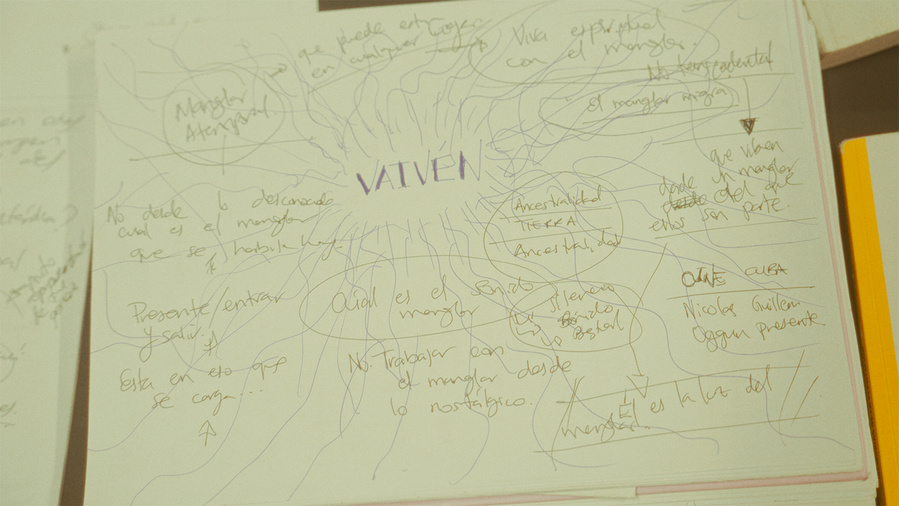 que puede estar
en cualquier lugar
Viva espiritual
con el manglar.
Manglar
Atemporal
No
el manglar migra
VAIVEN
que viben
desde un manglar
del que
ellos son parte.
Ancestralidad
TIERRA
Ancestralidad
No desde lo desconocido
cual es el manglar
que se habita hoy.
CINE CUBA
Nicolas Guillen
Oggun presente
Cual es el sonido
manglar
silencio
Presente/entrar
y salir.
No. Trabajar con
el manglar desde
lo nostalgico.
Esta en eso que
se carga...
El es la luz del
manglar.